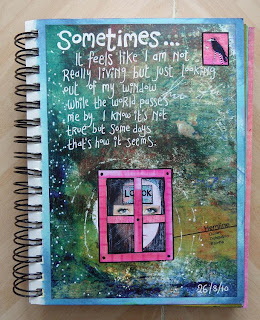 Sometimes...
It feels like I am not
Really living but just looking
out of my window
while the world passes
me by. I know it's not
true but some days
that's how it seems.
LOOK
26/8/10